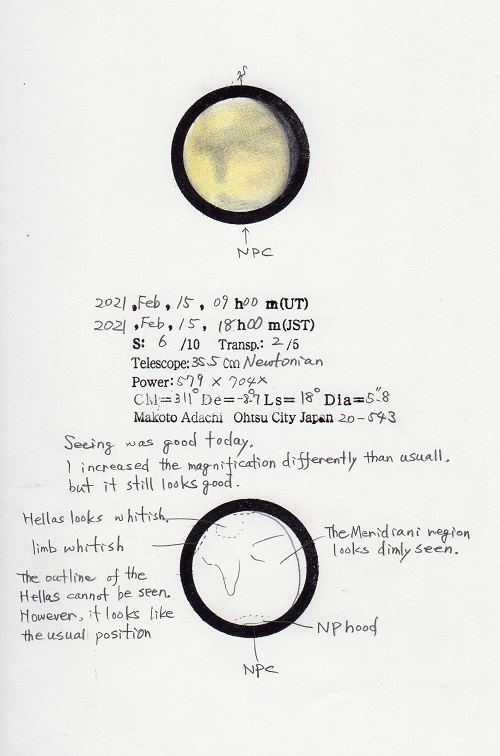 S
NPC
2021, Feb, 15, 09 h00 m(UT)
2021, Feb, 15, 18h00 m(JST)
S: 6 /10 Transp.: 2/5
Telescope: 35.5 cm Newtonian
Power: 579 × 704×
CM=311° De=-8.7 Ls= 18° Dia=5".8
Makoto Adachi Ohtsu City Japan 20-543
Seeing was good today.
I increased the magnification differently than usuall.
but it still looks good.
Hellas looks whitish.
limb whitish
The Meridiani region
looks dimly seen.
The outline of the
Hellas cannot be seen.
However, it looks like
the usual position
NP hood
NPC